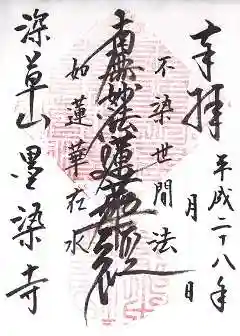 奉拝
平成二十八年
月
日
不染世間法
南無妙法蓮華経
如蓮華在水
深草山墨染寺